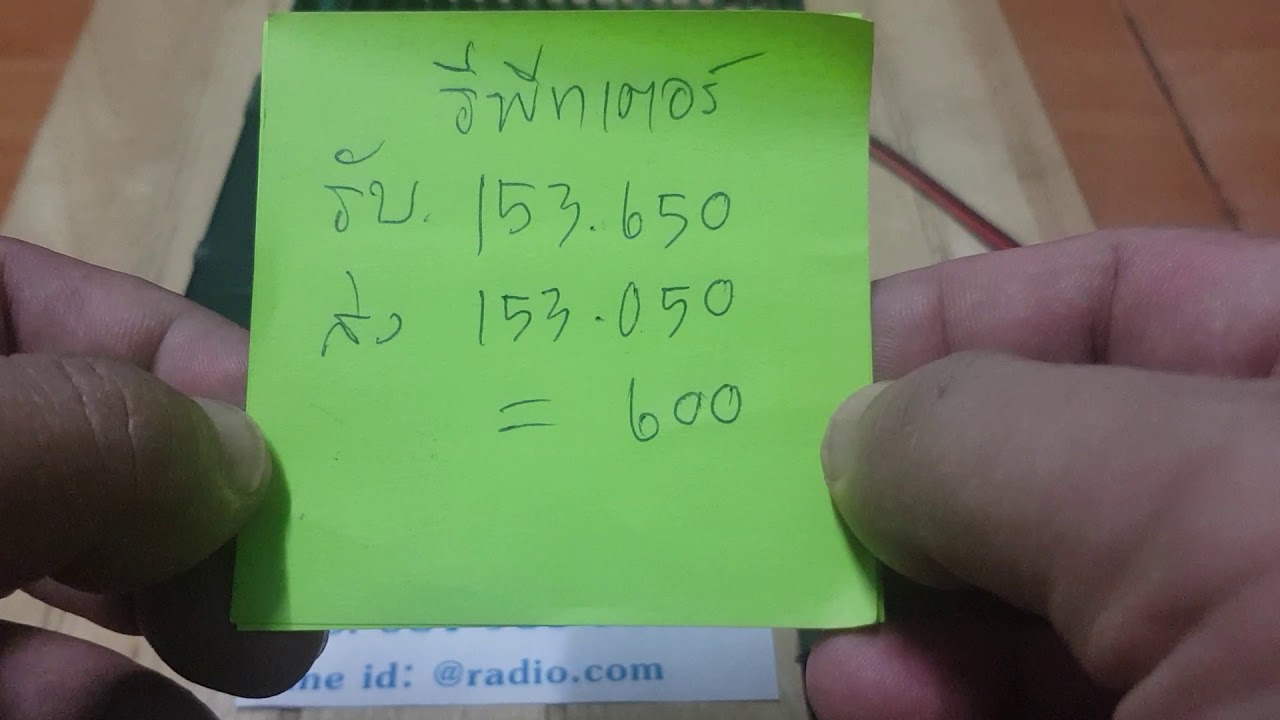 รีพีทเตอร์
รับ. 153.650
ส่ง 153.050
= 600
ne id: @radio.com